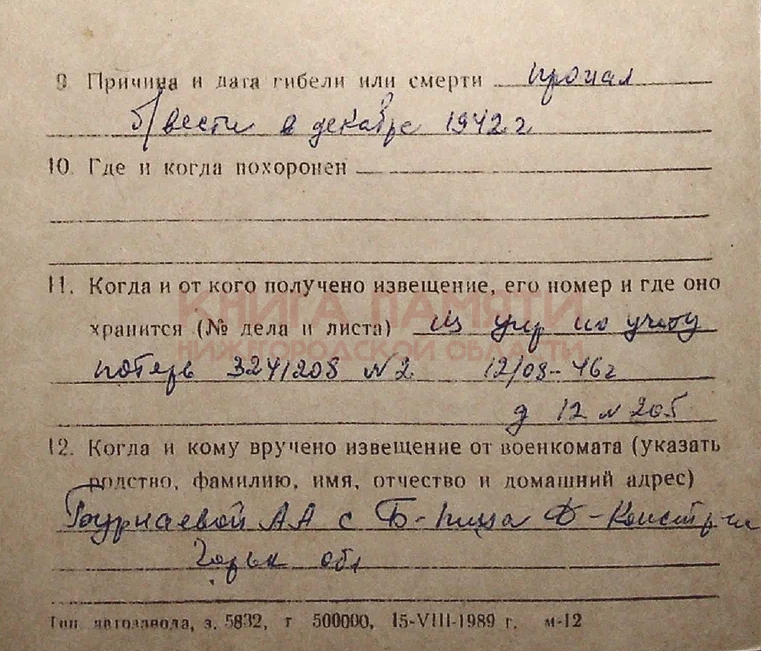 9. Причина и дата гибели или смерти пропал
б/вести в декабре 1942 г
10. Где и когда похоронен
11. Когда и от кого получено извещение, его номер и где оно
КНИГА ПАМЯТИ
хранится (№ дела и листа) из упр по учету
НИЖЕГОРОДСКОЙ ОБЛАСТИ
потерь 3241208 № 2 12/08-46г
д 12 л 205
12. Когда и кому вручено извещение от военкомата (указать
родство, фамилию, имя, отчество и домашний адрес)
Бурнаевой АА с Б-
Горьк обл
Тип. автозавода, з. 5832, т 500000, 15-VIII-1989 г. м-12